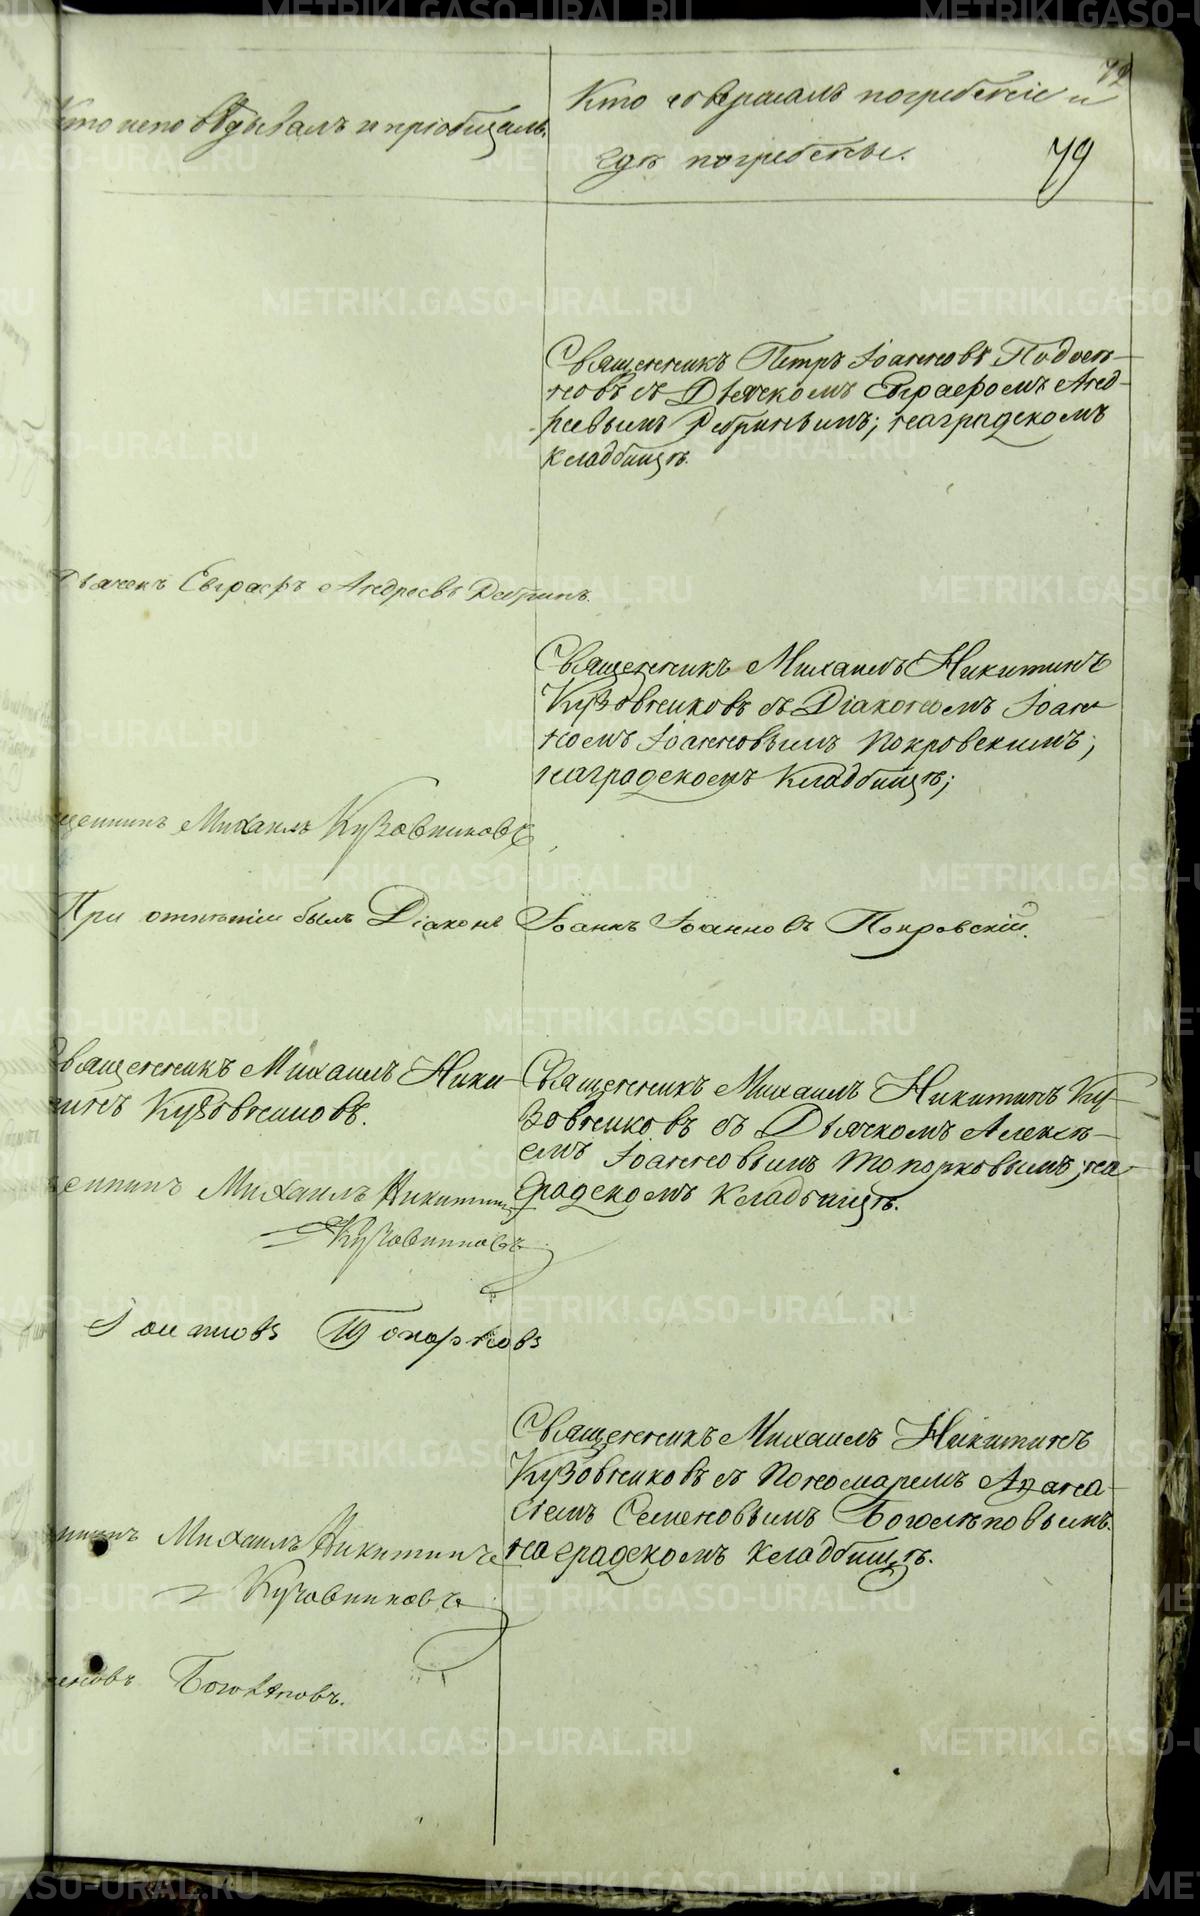 79
Кто исповѣдывалъ и пріобщалъ.
Кто совершалъ погребеніе и
гдѣ погребены.
79
Священникъ Петръ Іоанновъ
новъ съ Дьячкомъ Евграфомъ Анд-
реевымъ; на градскомъ
кладбищѣ.
Дьячекъ Евграфъ Андреевъ
Священникъ Михаилъ Никитинъ
Кузовниковъ съ Діакономъ Іоан-
номъ Іоанновымъ Покровскимъ;
на градскомъ кладбищѣ;
щенникъ Михаилъ Кузовниковъ
При отпѣтіи былъ Діаконъ Іоаннъ Іоанновъ Покровскій.
Священникъ Михаилъ Ники-
тинъ Кузовниковъ.
Священникъ Михаилъ Никитинъ Ку-
зовниковъ съ Дьячкомъ Алексѣ-
емъ Іоанновымъ Топорковымъ; на
градскомъ кладбищѣ.
щенникъ Михаилъ Никитинъ
Кузовниковъ
Іоанновъ Топорковъ
Священникъ Михаилъ Никитинъ
Кузовниковъ съ Пономаремъ Афана-
сіемъ Семеновымъ Боголѣповымъ.
на градскомъ кладбищѣ.
нникъ Михаилъ Никитинъ
Кузовниковъ
еновъ Боголѣповъ.
METRIKI.GASO-URAL.RU